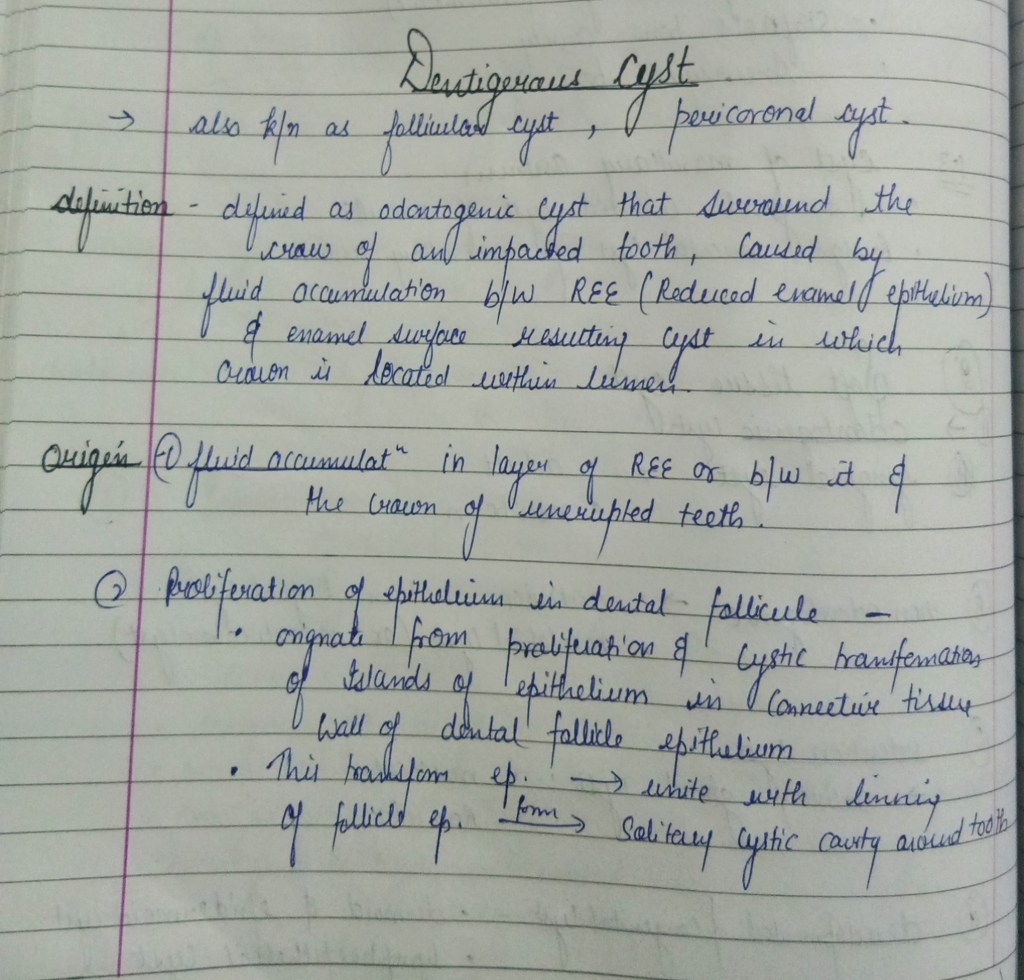 Dentigerous Cyst
→ also k/n as follicular cyst, pericoronal cyst.
definition - defined as odontogenic cyst that surround the
craw of an impacted tooth, caused by
fluid accumulation b/w REE (Reduced enamel epithelium)
& enamel surface resulting cyst in which
crown is located within lumen.
origin ① fluid accumulatⁿ in layer of REE or b/w it &
the crown of unerupted teeth.
② Proliferation of epithelium in dental follicule -
• orignate from proliferation & cystic transfemation
of Islands of epithelium in connective tissue
wall of dental follicle epithelium
• This transform ep. → unite with linnig
of follicle ep. form → Solitary cystic cavity around tooth